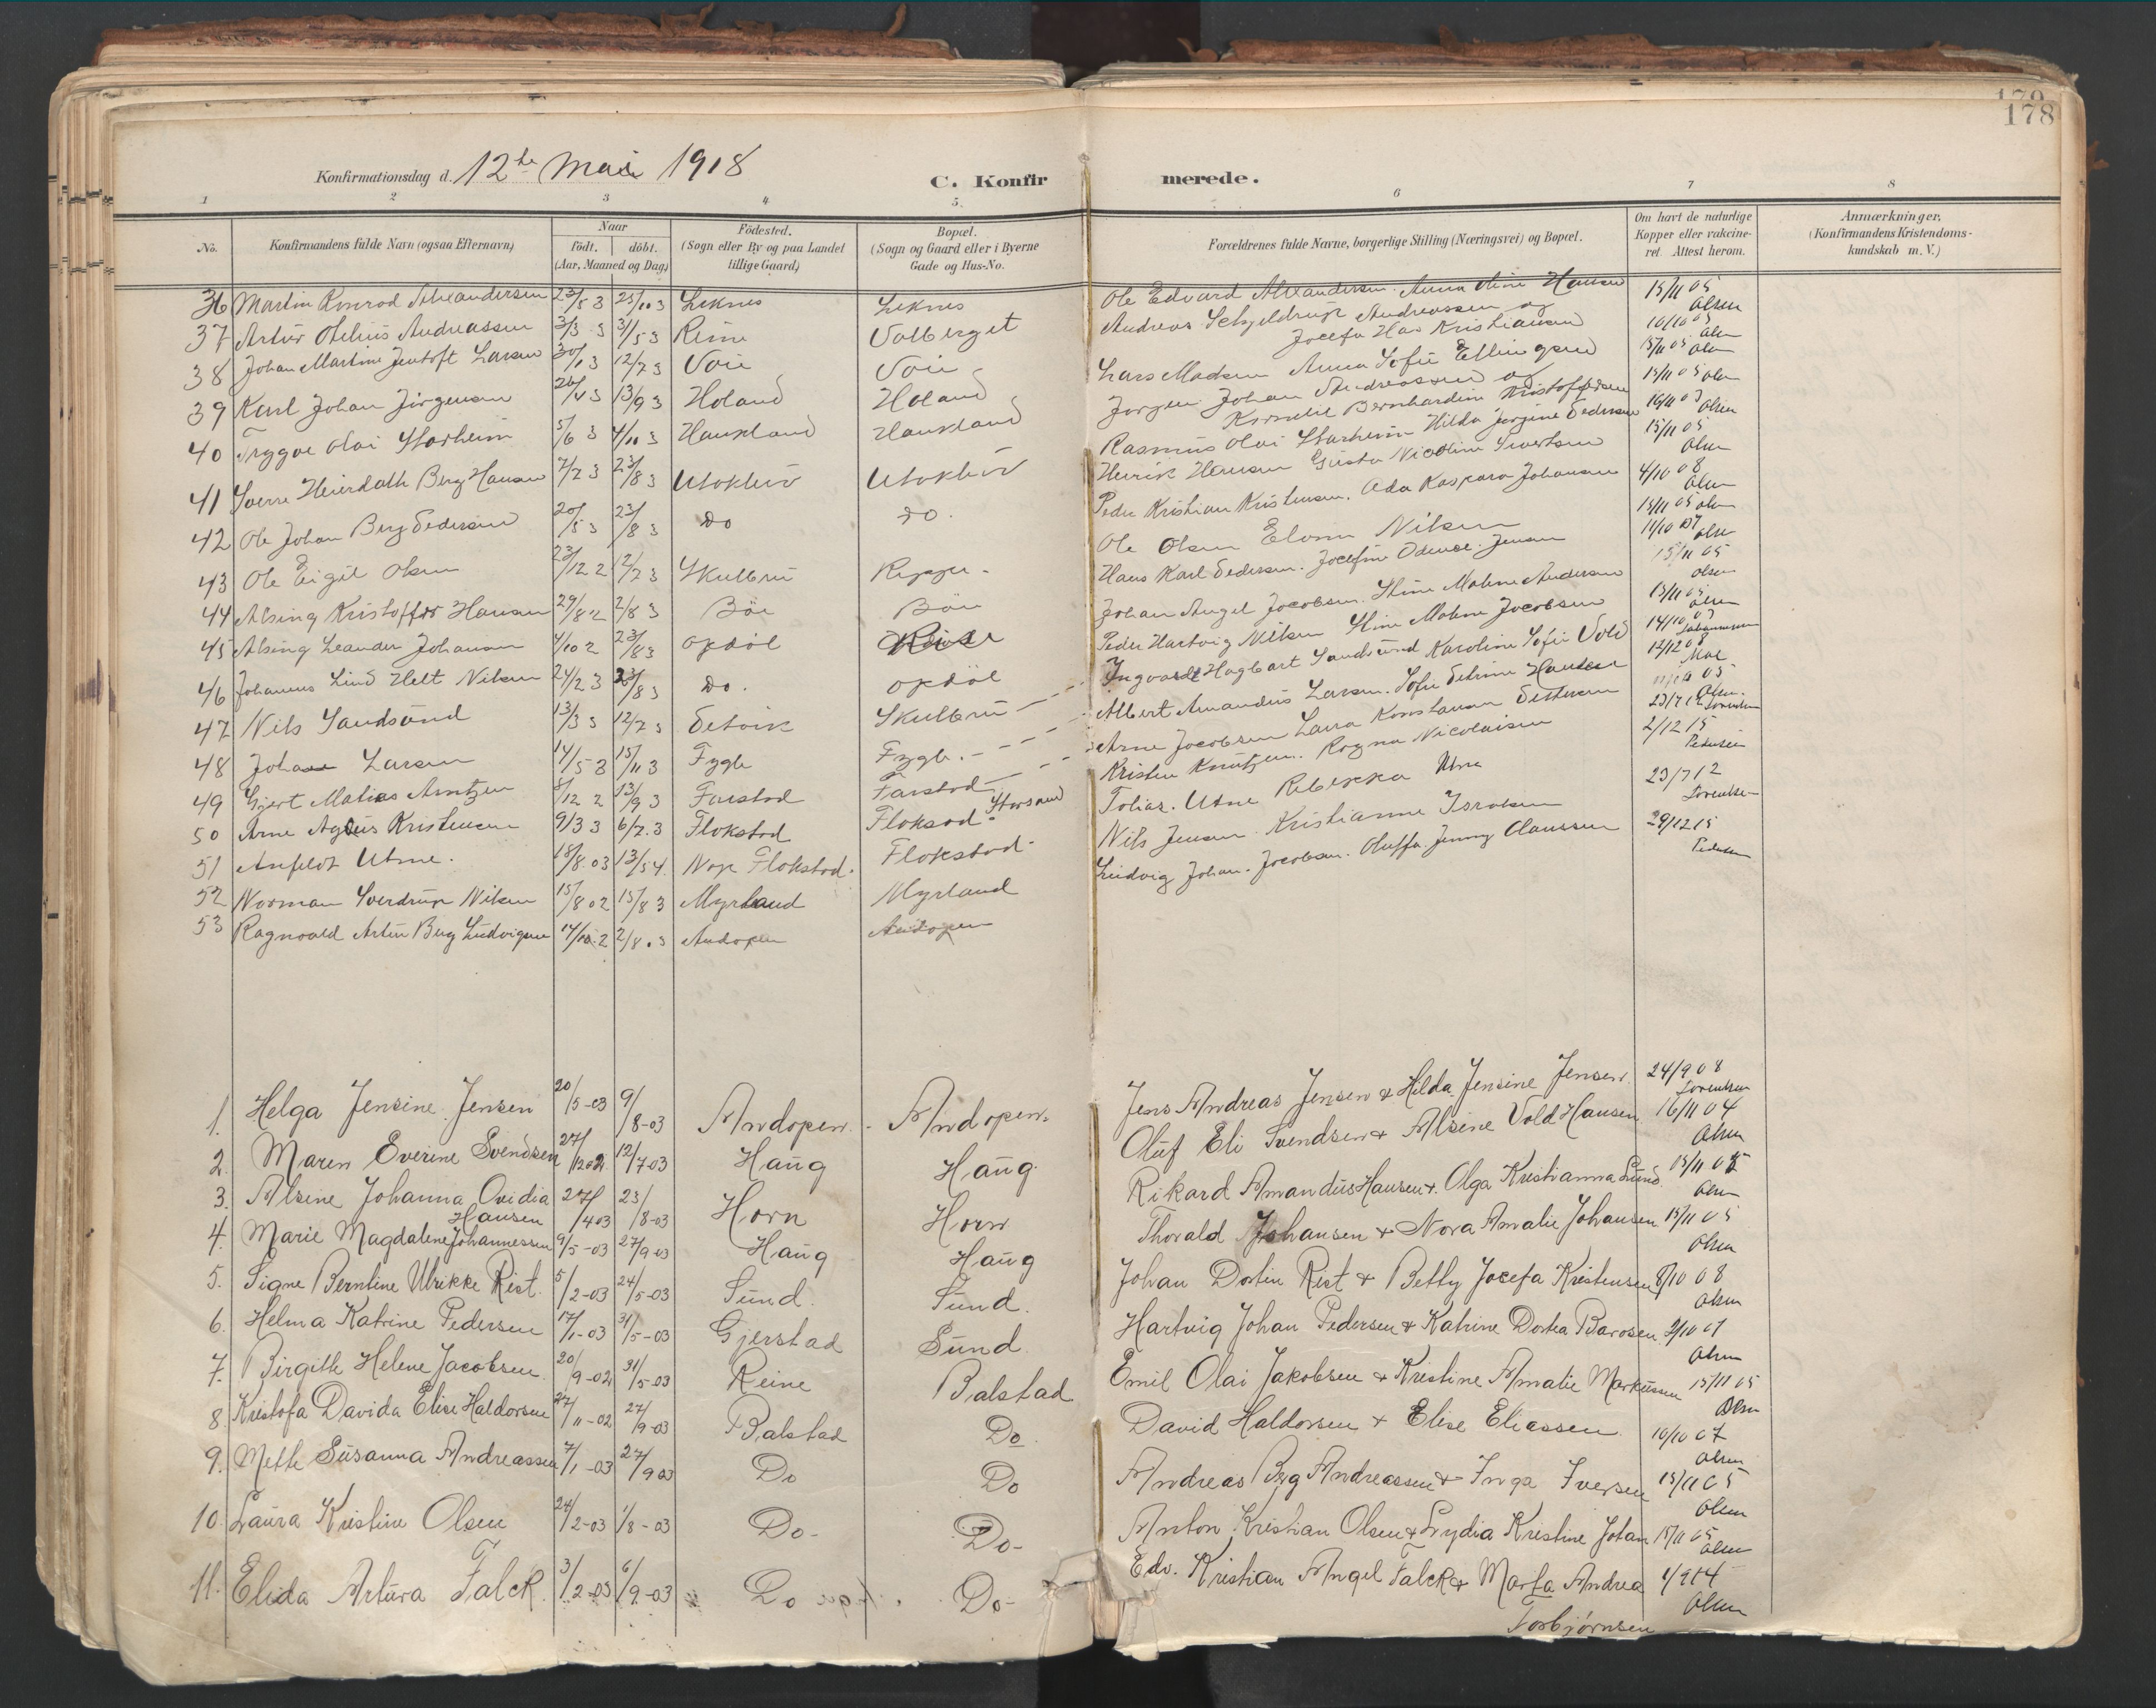 178
Konfirmationsdag d. 12te Mai 1918
C. Konfirmerede.
1 2 3 4 5. 6 7 8
No.
Konfirmandens fulde Navn (ogsaa Efternavn)
Naar
født. døbt.
(Aar, Maaned og Dag)
Fødested.
(Sogn eller By og paa Landet
tillige Gaard)
Bopæl.
(Sogn og Gaard eller i Byerne
Gade og Hus-No.
Forældrenes fulde Navne, borgerlige Stilling (Næringsvei) og Bopæl.
Om havt de naturlige
Kopper eller vakcine-
ret. Attest herom.
Anmærkninger,
(Konfirmandens Kristendoms-
kundskab m. V.)
36 Martin Konrad Alexandersen 23/5 3 25/10 3 Leknes Leknes Ole Edvard Alexandersen. Anna Oline Hansen 15/11 05 Olsen
37 Artur Otelius Andreassen 3/3 3 31/5 3 Reine Valberget Andreas Schjeldrup Andreassen og
Josefa Has Kristiansen 10/10 05 Olsen
38 Johan Martin Jentoft Larsen 30/1 3 12/7 3 Voie Voie Lars Madsen Anna Sofie Ellingsen 15/11 05 Olsen
39 Karl Johan Jørgensen 13/9 3 Holand Holand Jørgen Johan Andreassen og
Kornelie Bernhardine Kristoffersen 15/11 05 Olsen
40 Trygve Olai Starheim 5/6 3 4/10 3 Haukland Haukland Rasmus Olai Starheim Hilda Jørgine Pedersen 16/11 03 Olsen
41 Sverre Heierdahl Berg Hansen 7/7 3 23/8 3 Utakleiv Utakleiv Henrik Hansen Gusta Nicoline Sivertsen 15/11 05 Olsen
42 Ole Johan Berg Pedersen 20/5 3 23/8 3 Do Do. Peder Kristian Kristensen. Ada Kaspara Johansen 4/10 08 Olsen
43 Ole Eigil Olsen 23/12 2 12/7 3 Skulbru Ole Olsen Nilsen 15/11 05 Olsen
44 Alsing Kristoffer Hansen 29/8 2 2/8 3 Böe Böe Hans Karl Pedersen. Josefine Odense Jensen 11/10 07 Olsen
45 Alsing Leander Johansen 4/10 2 23/8 3 Opdöl Johan Angel Jacobsen. Stine Malene Andersen 15/11 05 Olsen
46 Johannes Lind Helt Nilsen 24/2 3 23/8 3 Do. Opdöl Peder Hartvig Nilsen Stine Malene Jacobsen 15/11 05 Olsen
47 Nils Sandsund 13/3 3 12/7 3 Petvik Skulbru Ingvard Hagbart Sandsund Karoline Sofie Vold 14/10 03 Johannessen
48 Johan Larsen 14/5 3 15/11 3 Fygle Fygle. Albert Amandus Larsen. Sofie Petrine Hansen 12/12 08 Moe
49 Gjert Matias Arntzen 8/12 2 13/9 3 Farstad Farstad Arne Jacobsen Laura Konstanse Pettersen
50 Arne Kristensen 9/3 3 6/7.3 Flakstad Flaksad. Storsand Kristen Knutzen. Ragna Nicolaisen 23/7 12 Lorentsen
51 Anfeldt Utne. 18/8.03 13/5 4. Flakstad. Flakstad. Tobias. Utne Rebekka Utne 2/12 15 Pedersen
52 Norman Sverdrup Nilsen 15/8 02 15/8 3 Myrland Myrland Nils Jensen Kristianne Israelsen 23/7 12 Lorentsen
53 Ragnvald Artur Berg Ludvigsen 14/10.2 2/8.3 Andopen Andopen Ludvig Johan. Jacobsen. Oluffa. Jenny Claussen 29/12 15 Pedersen
1. Helga Jensine Jensen 20/5-03 9/8-03 Andopen. Andopen. Jens Andreas Jensen & Hilda Jensine Jensen 24/9 08 Lorentsen
2. Maren Everine Svendsen 27/12 02 12/7-03 Haug Haug. Oluf Eli Svendsen & Alsine Vold Hansen 16/11 04 Olsen
3. Alsine Johanna Ovidia
Hansen 27/4 03 23/8-03 Horn Horn Rikard Amandus Hansen & Olga Kristianna Lund 15/11 05 Olsen
4. Marie Magdalene Johannessen 9/5-03 27/9-03 Haug Haug Thorald Johansen & Nora Amalie Johansen 15/11 05 Olsen
5. Signe Berntine Ulrikke Rist. 5/2-03 24/5-03 Sund. Sund. Johan Dortin Rist & Betty Josefa Kristensen 8/10 08 Olsen
6. Helma Katrine Pedersen 17/1-03 31/5-03 Gjerstad Sund Hartvig Johan Pedersen & Katrine Dortea Barosen 2/10 07 Olsen
7. Birgitte Helene Jacobsen 20/9-02 31/5-03 Reine Balstad Emil Olai Jakobsen & Kristine Amalie Markussen 15/11 05 Olsen
8. Kristofa Davida Elise Haldorsen 27/11-02 27/9-03 Balstad Do. David Haldorsen & Elise Eliassen 10/10 07 Olsen
9. Mette Susanna Andreassen 7/1-03 27/9 03 Do Do Andreas Berg Andreassen & Inga Iversen 15/11 05 Olsen
10. Laura Kristine Olsen 24/2-03 1/8-03 Do- Do- Anton Kristian Olsen & Lydia Kristine Johan 15/11 05 Olsen
11. Elida Artura Falck. 3/2-03 6/9-03 Do Do- Edv. Kristian Angel Falck & Marta Andrea
Torbjørnsen 1/9 14 Olsen